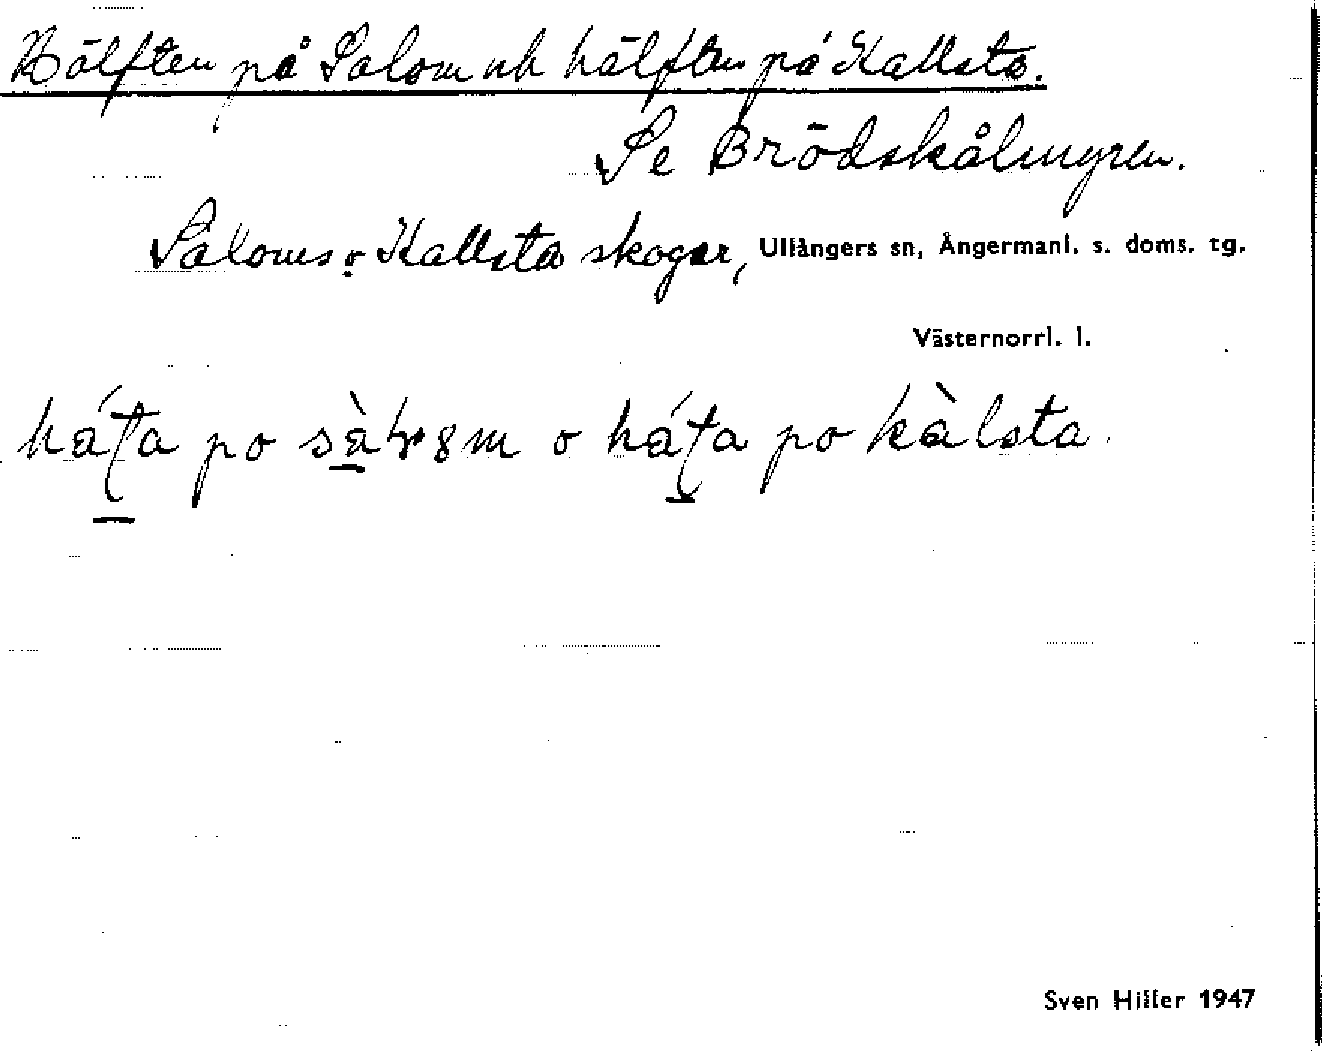 Hälften på Salom och hälften på Kallsta.
Se Brödskålmyren.
Saloms o. Kallsta skogar, Ullångers sn, Ångermanl. s. doms. tg.
Västernorrl. l.
po o po kàlsta.
Sven Hiller 1947